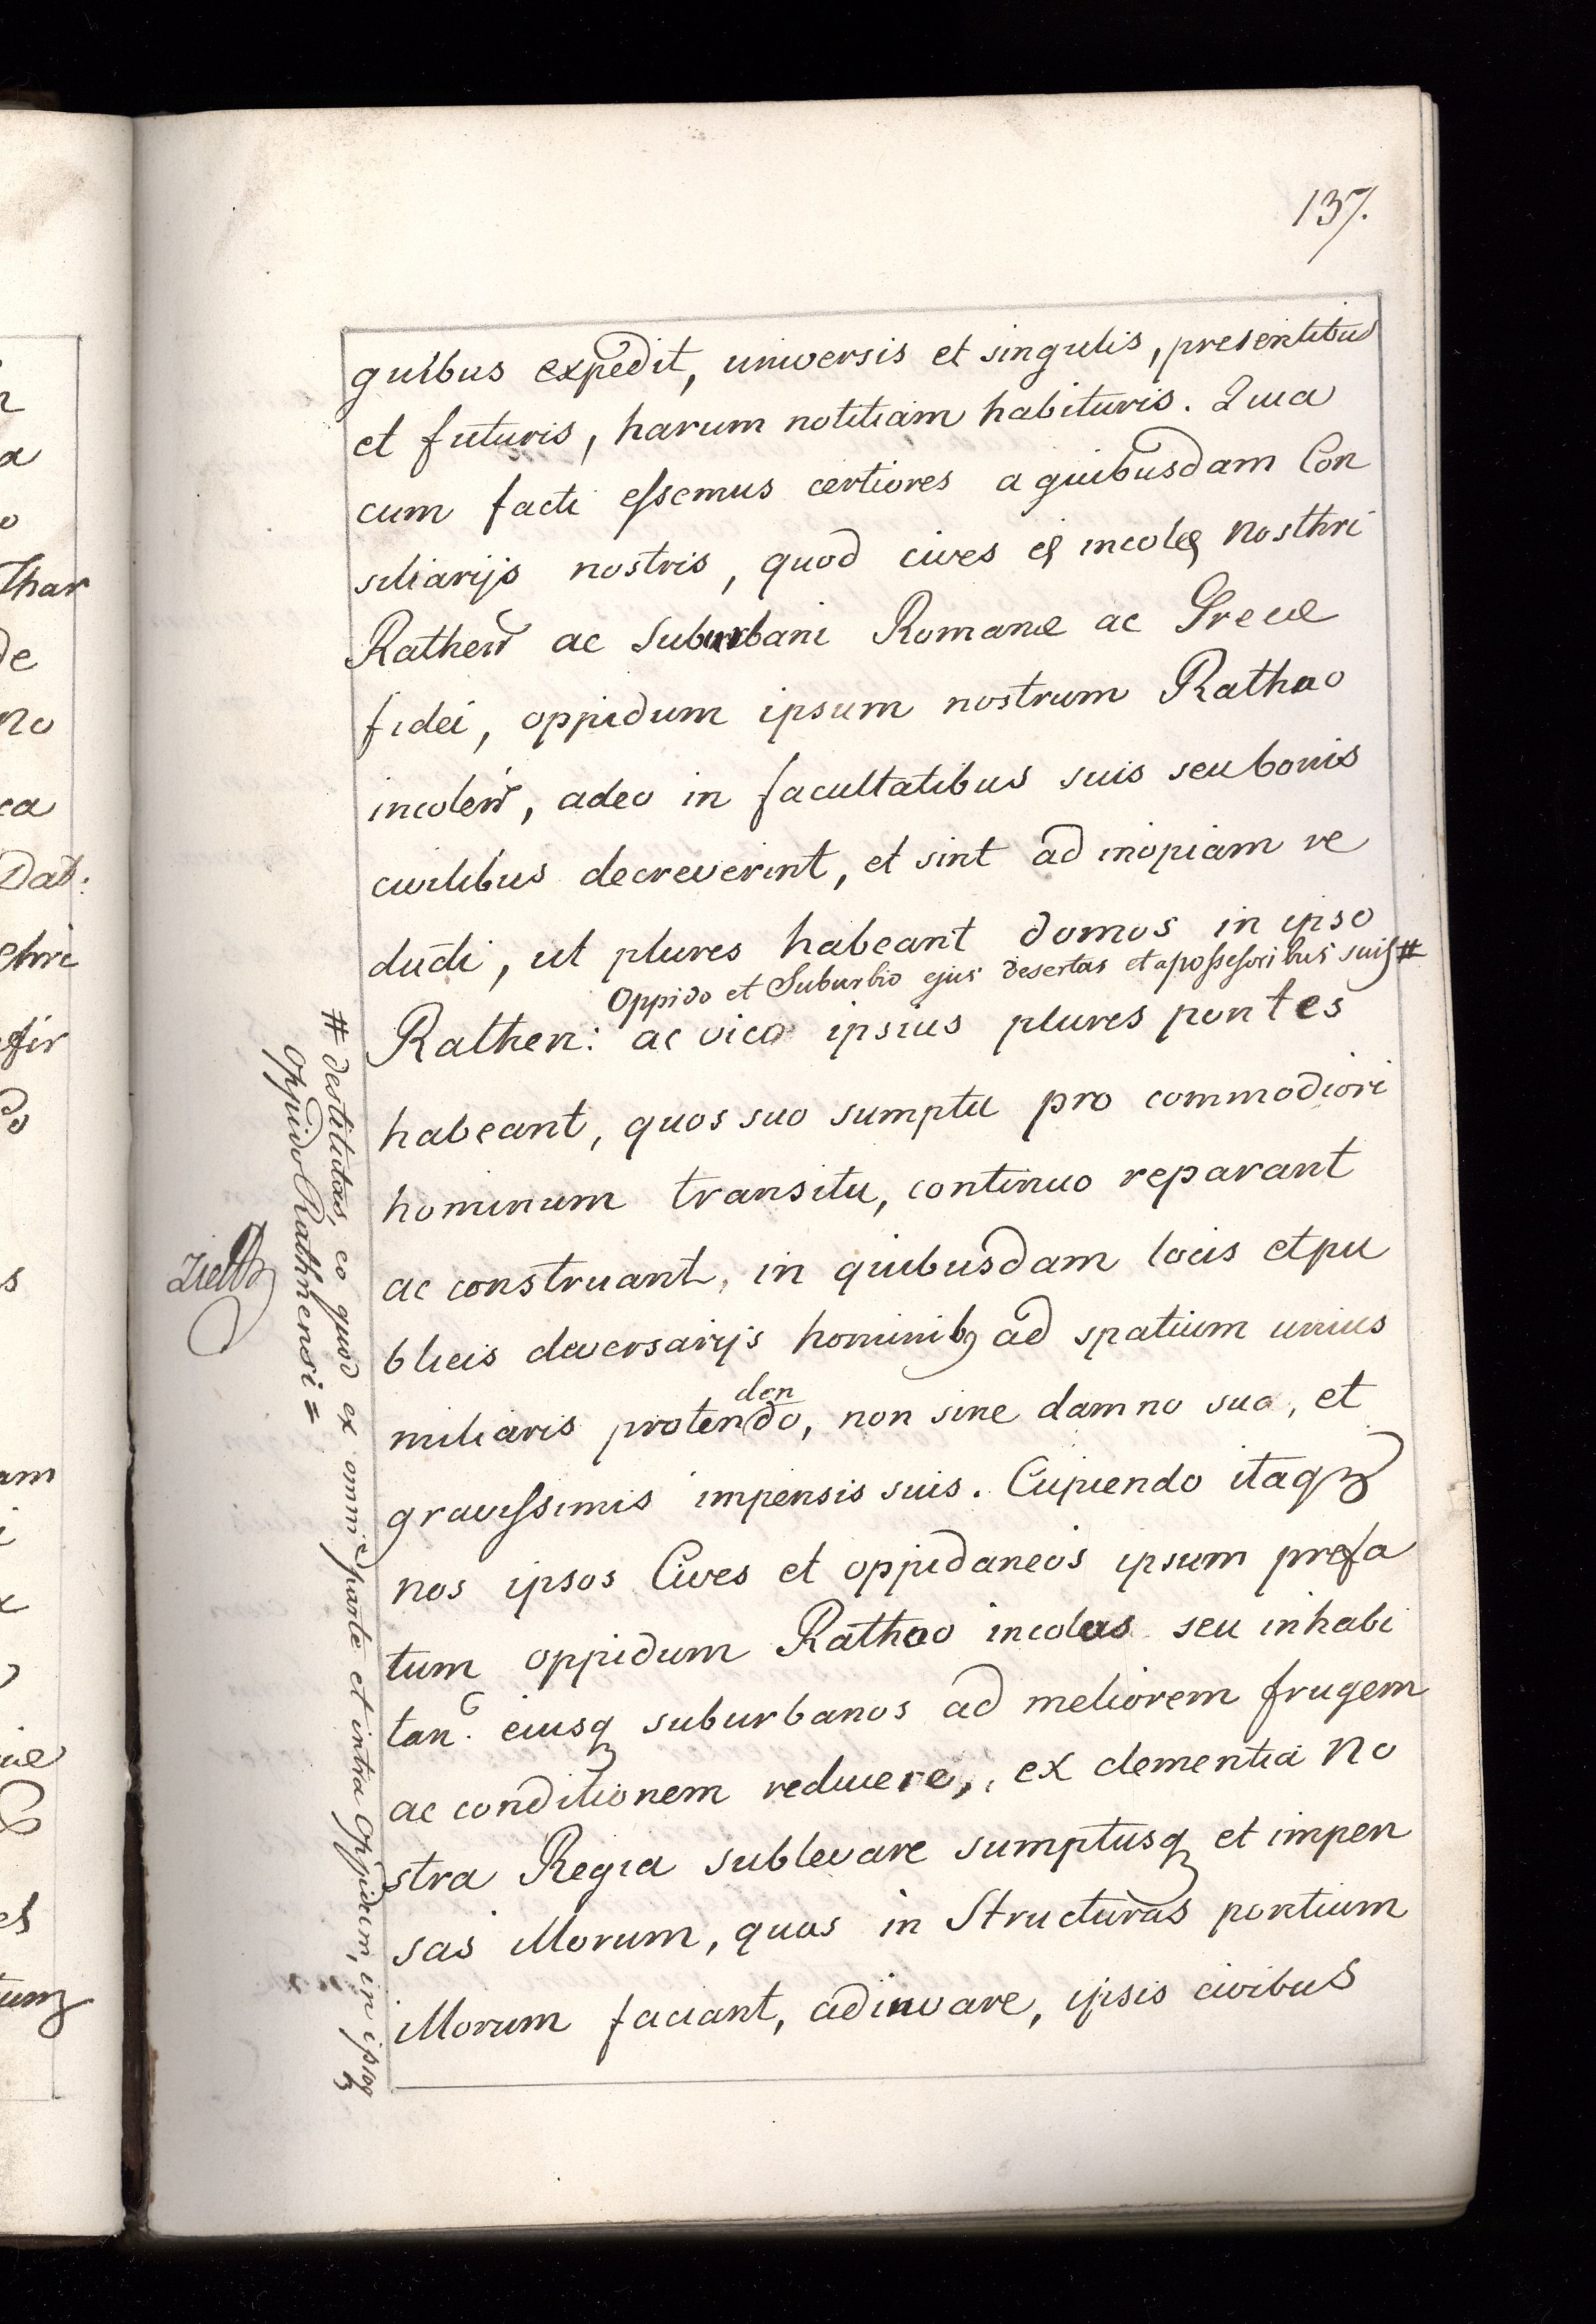 137.
quibus expedit, universis et singulis, presentibus
et futuris, harum notitiam habituris. Quia
cum facti essemus certiores a quibusdam Con
siliarijs nostris, quod cives et incolę nosthri
Rathen̄ ac Suburbani Romanæ ac Grecæ
fidei, oppidum ipsum nostrum Rathno
incolen̄, adeo in facultatibus suis seu bonis
civilibus decreverint, et sint ad inopiam re
dūdi, ut plures habeant domos in ipso
Oppido et Suburbio ejus desertas et a possessoribus suis #
Rathen: ac vico ipsius plures pontes
habeant, quos suo sumptu pro commodiori
hominum transitu, continuo reparant
ac construant, in quibusdam locis et pu
blicis diversarijs hominibq ad spatium unius
miliaris protendo, non sine damno suo, et
den
gravissimis impensis suis. Cupiendo itaqz
nos ipsos Cives et oppidaneos ipsum prefa
tum oppidum Rathno incolas seu inhabi
tan. eiusq suburbanos ad meliorem frugem
ac conditionem reducere, ex clementia no
stra Regia sublevare sumptusq et impen
sas illorum, quas in Structuras pontium
illorum faciant, adiuvare, ipsis civibus
# destitutas, eo quod ex omni parte et intra Oppidum, in ipsoq
Oppido Rathnensi =